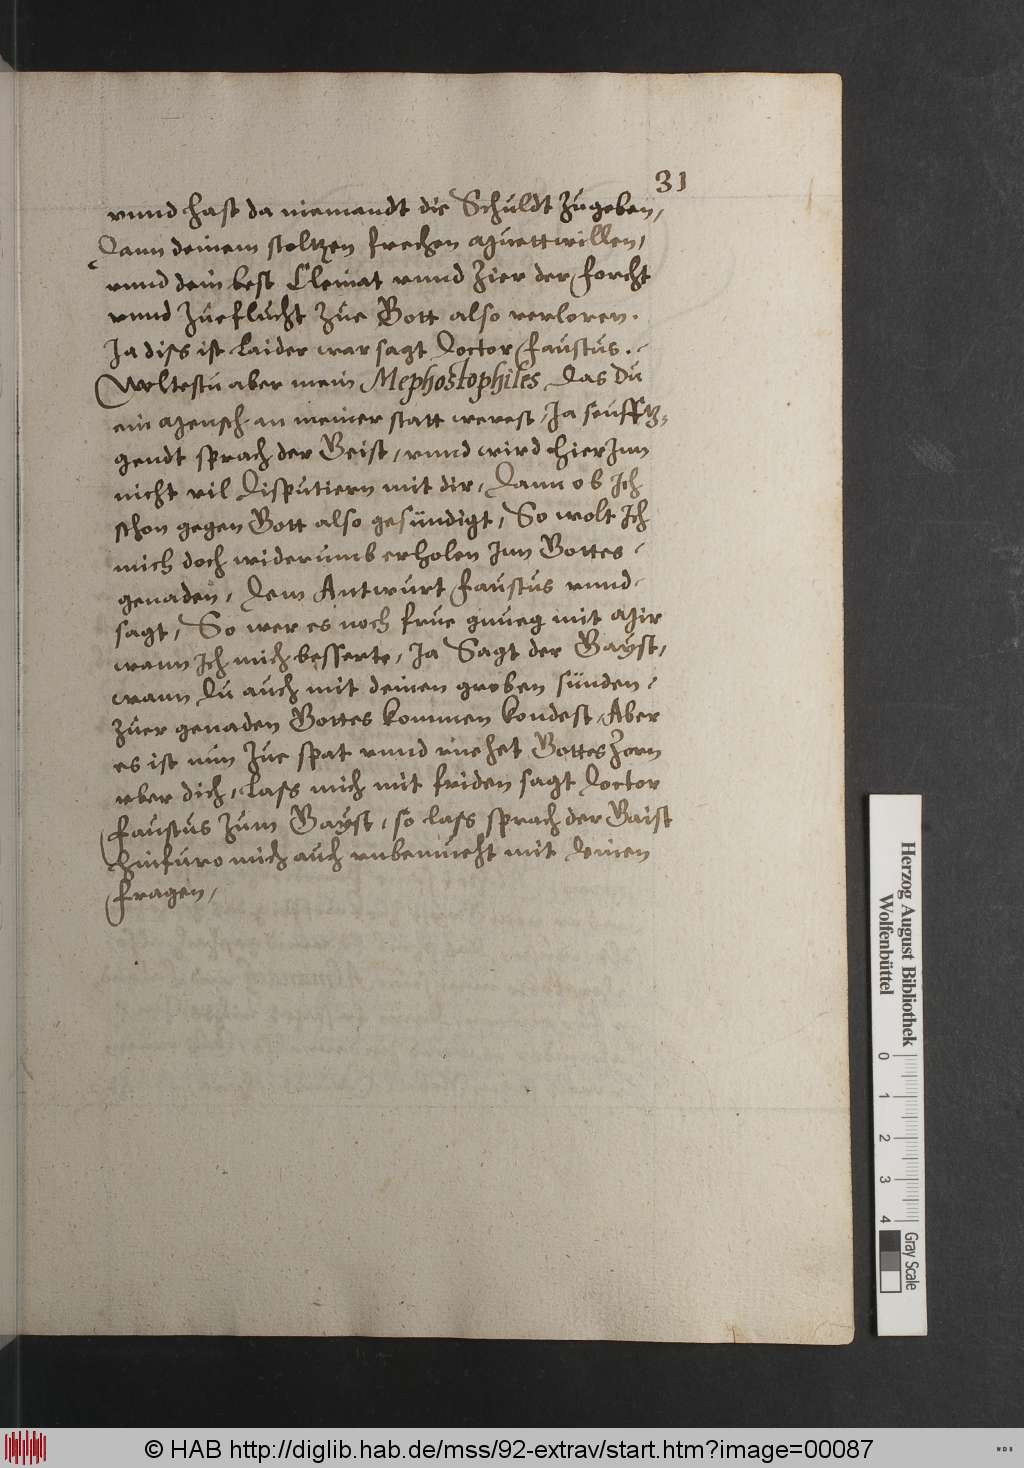 31
vnnd hast da niemandt die Schuldt zugeben,
Dann deinem stoltzen frechen Muettwillen,
vnnd dein best Cleinat vnnd Zier der forcht
vnnd Zueflucht Zue Gott also verloren.
Ja diss ist laider war sagt Doctor faustus.
Woltestu aber mein Mephostophiles Das Du
ein Mensch an meiner statt werest, Ja seufftz,
gendt sprach der Geist, vnnd wird hierInn
nicht vil Disputiern mit dir, Dann ob Ich
schon gegen Gott also gesündigt, So wolt Ich
mich doch widerumb erholen Inn Gottes
genaden, Dem Antwurt faustus vnnd
sagt, So wer es noch frue gnueg mit Mir
wann Ich mich besserte, Ja Sagt der Gayst,
wann Du auch mit deinen groben sünden
Zuer genaden Gottes kommen kondest, Aber
es ist nun Zue spat vnnd ruehet Gottes Zorn
vber dich, Lass mich mit friden sagt Doctor
faustus Zum Gayst, so lass sprach der Gaist
hinfuro mich auch vnbemueht mit Deinen
fragen,
Herzog August Bibliothek
Wolfenbüttel
0 1 2 3 4
Gray Scale
© HAB http://diglib.hab.de/mss/92-extrav/start.htm?image=00087